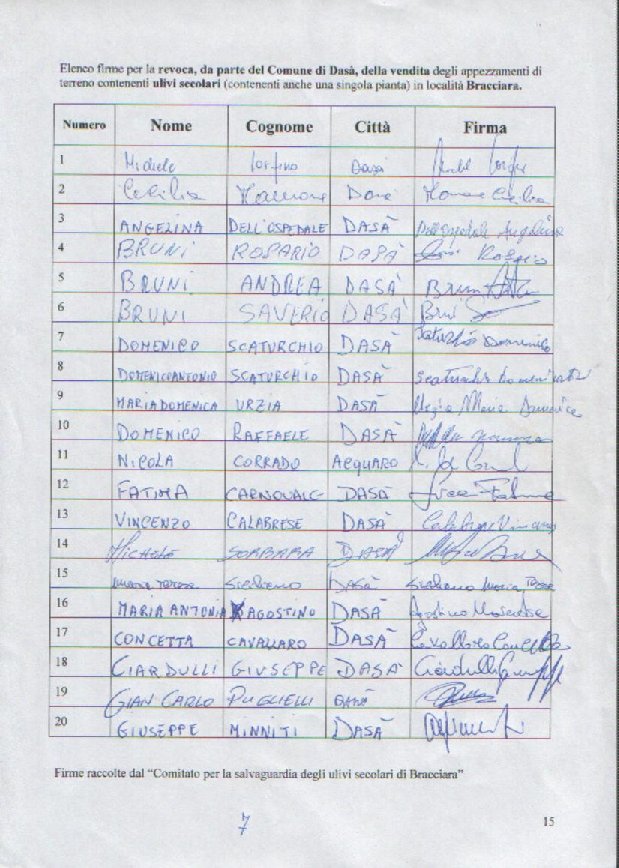 Elenco firme per la revoca, da parte del Comune di Dasà, della vendita degli appezzamenti di
terreno contenenti ulivi secolari (contenenti anche una singola pianta) in località Bracciara.
Numero Nome Cognome Città Firma
1 Michele Dasà
2 Cecilia Dasà
3 ANGELINA DELL'OSPEDALE DASÀ Dell'ospedale Angelina
4 BRUNI ROSARIO DASÀ Rosario
5 BRUNI ANDREA DASÀ Bruni
6 BRUNI SAVERIO DASÀ Bruni
7 DOMENICO SCATURCHIO DASÀ Scaturchio Domenico
8 DOMENICOANTONIO SCATURCHIO DASÀ
9 MARIADOMENICA URZIA DASÀ Urzia Maria Domenica
10 DOMENICO RAFFAELE DASÀ
11 NICOLA CORRADO ACQUARO
12 FATIMA CARNOVALE DASÀ
13 VINCENZO CALABRESE DASÀ Calabrese Vincenzo
14 Michele SORBARA DASÀ
15 Maria Teresa DASÀ Maria Teresa
16 MARIA ANTONIA AGOSTINO DASÀ
17 CONCETTA CAVALLARO DASÀ Cavallaro Concetta
18 CIARDULLI GIUSEPPE DASÀ Ciardulli
19 GIAN CARLO PUGLIELLI DASÀ
20 GIUSEPPE MINNITI DASÀ
Firme raccolte dal “Comitato per la salvaguardia degli ulivi secolari di Bracciara”
7 15